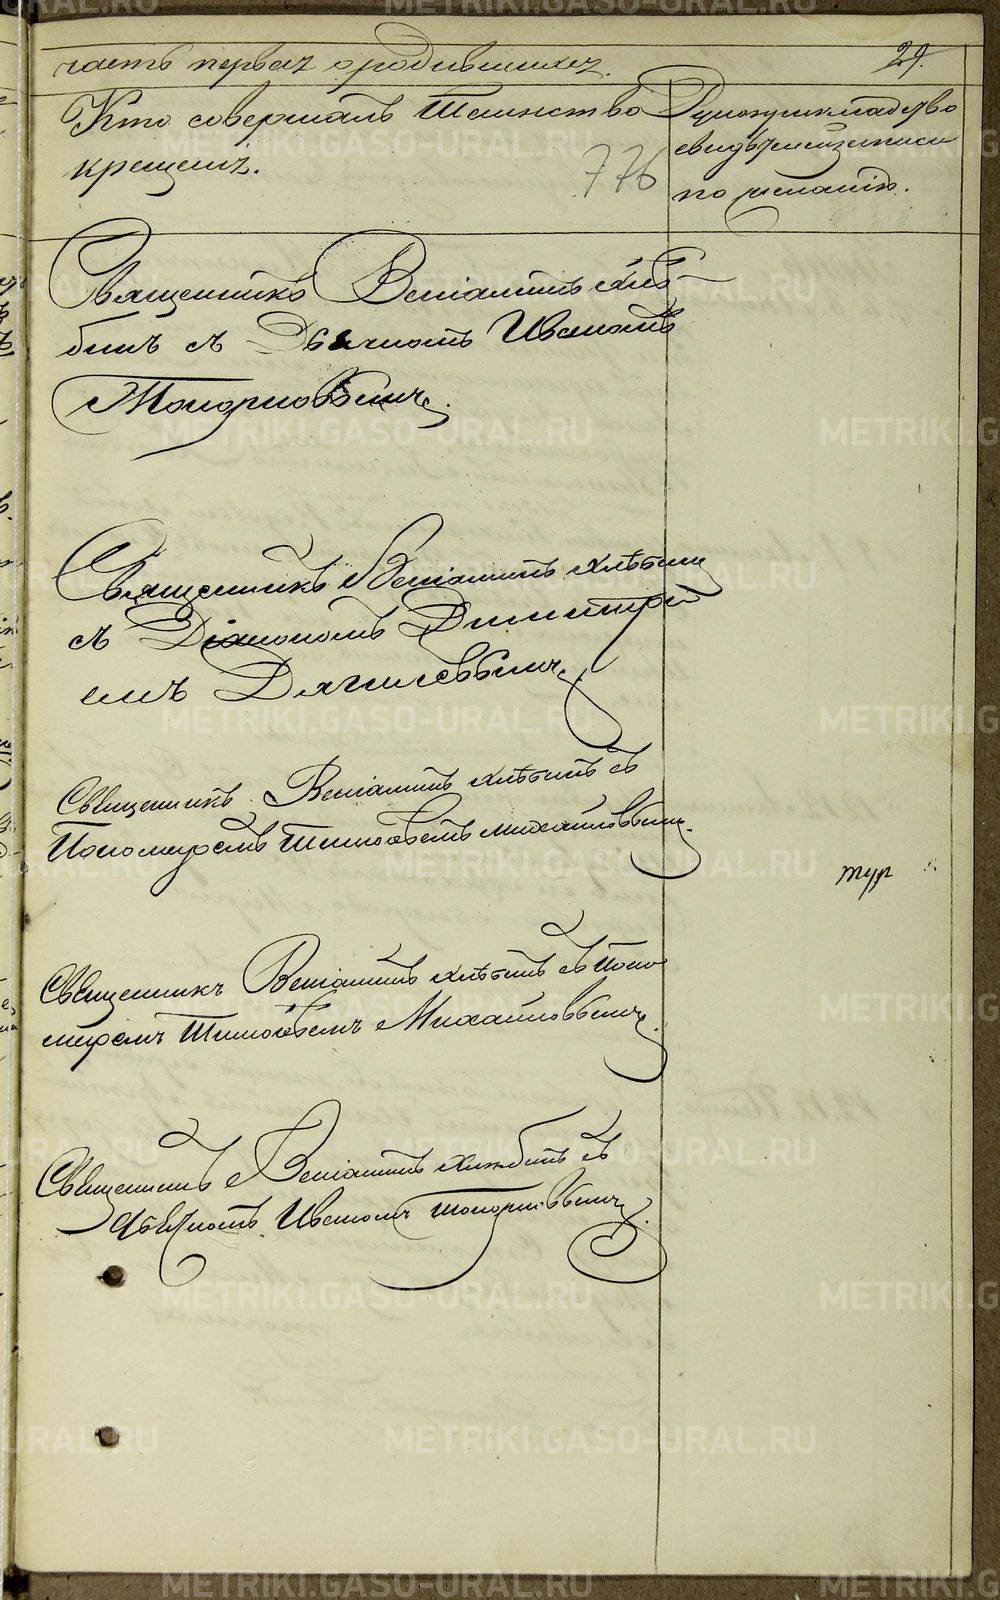 METRIKI.GASO-URAL.RU
часть первая о родившихся.
29.
Кто совершалъ Таинство
крещенія.
776
Рукоприкладство
свидѣтелей записи
по желанію.
Священникъ Веніаминъ Хлѣ-
бинъ съ Дьячкомъ Иваномъ
Топорковымъ.
Священникъ Веніаминъ Хлѣбинъ
съ Діакономъ Димитрі
емъ Дягилевымъ.
Священникъ Веніаминъ Хлѣбинъ съ
Пономаремъ Тимоѳеемъ Михайловымъ.
тур
Священникъ Веніаминъ Хлѣбинъ съ Поно
маремъ Тимоѳеемъ Михайловымъ.
Священникъ Веніаминъ Хлѣбинъ съ
дьячкомъ Иваномъ Топорковымъ.